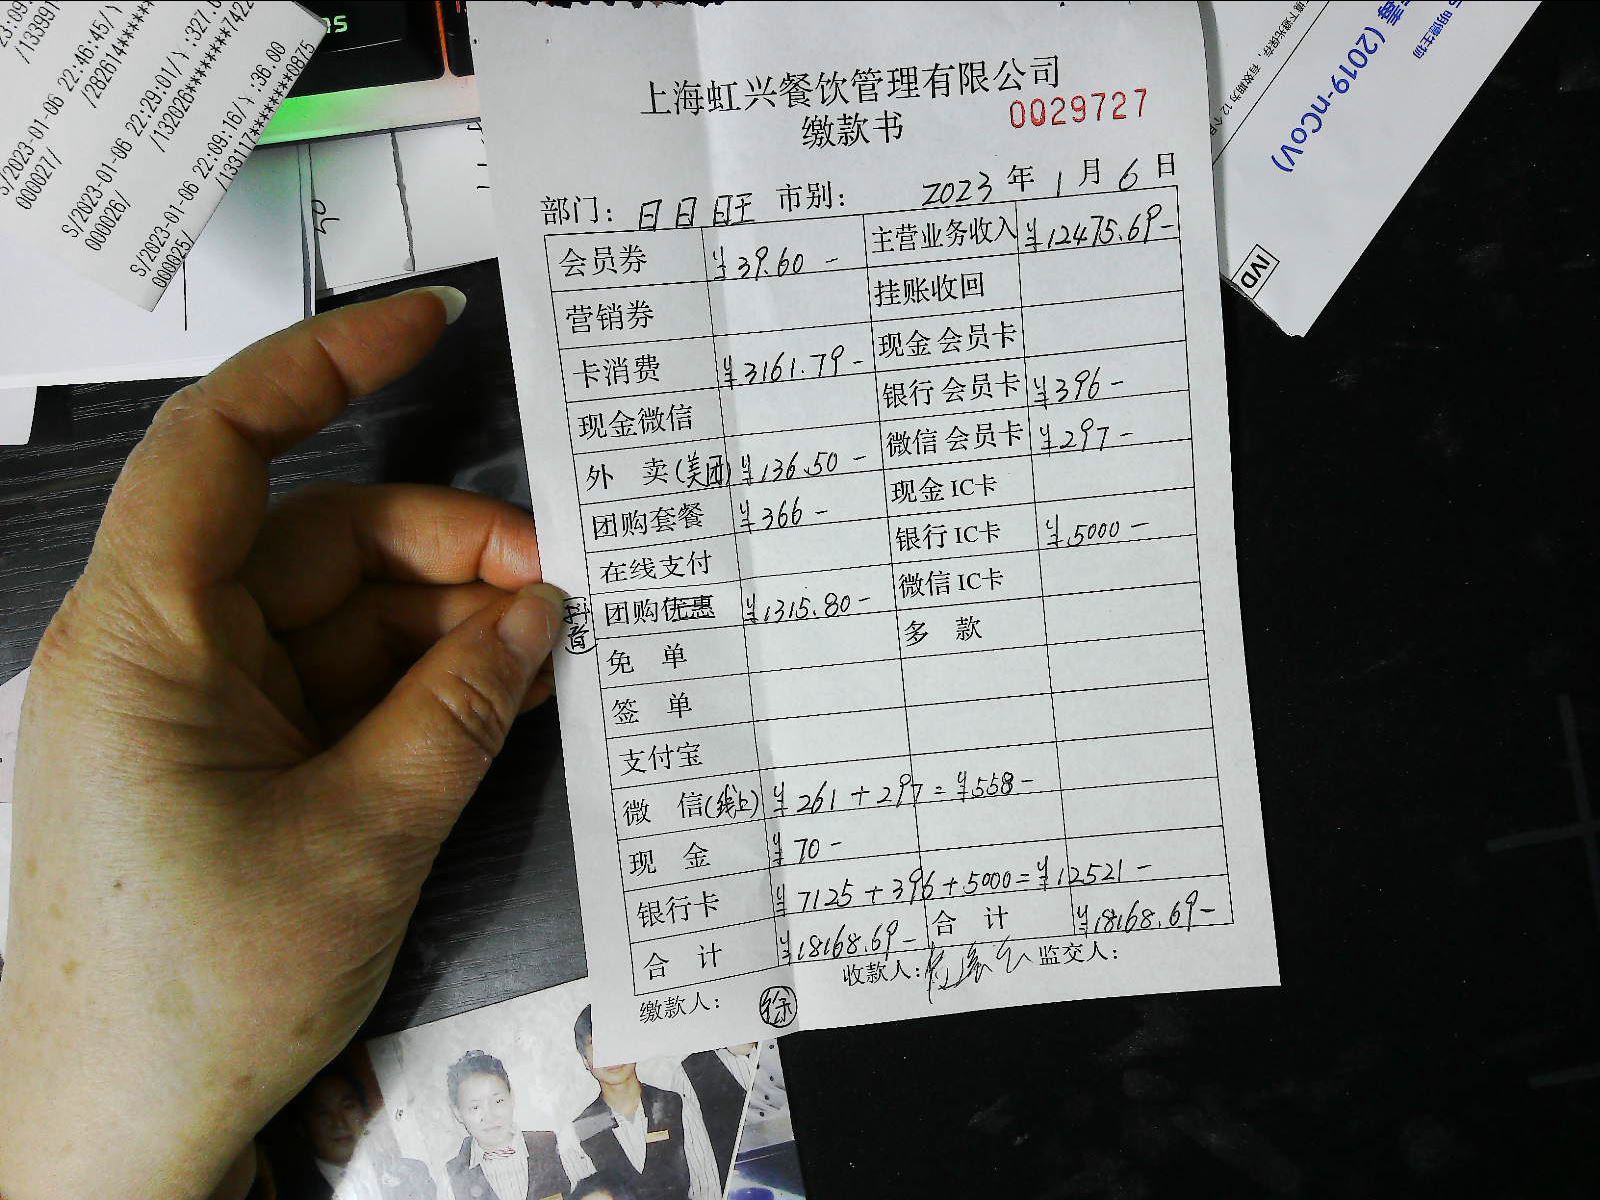 上海虹兴餐饮管理有限公司
缴款书 0029727
部门: 日日旺 市别: 2023 年 1 月 6 日
会员券 ¥39.60- 主营业务收入 ¥12475.69-
营销券 挂账收回
卡消费 ¥3161.79- 现金 会员卡
现金微信 银行 会员卡 ¥396-
外 卖(美团) ¥136.50- 微信 会员卡 ¥297-
团购套餐 ¥366- 现金 IC卡
在线支付 银行 IC卡 ¥5000-
抖音 团购优惠 ¥1315.80- 微信 IC卡
免 单 多 款
签 单
支付宝
微 信(线上) ¥261+297=¥558-
现 金 ¥70-
银行卡 ¥7125+396+5000=¥12521-
合 计 ¥18168.69- 合 计 ¥18168.69-
缴款人: 徐 收款人: 监交人:
S/2023-01-06 22:46:45/
000027/ /282614******
S/2023-01-06 22:29:01/ ):327.0
000026/ /132026*********7422
S/2023-01-06 22:09:16/ ):36.00
000025/ /133117*********0875
/133991
毒 (2019-nCoV)
明德生物
IVD